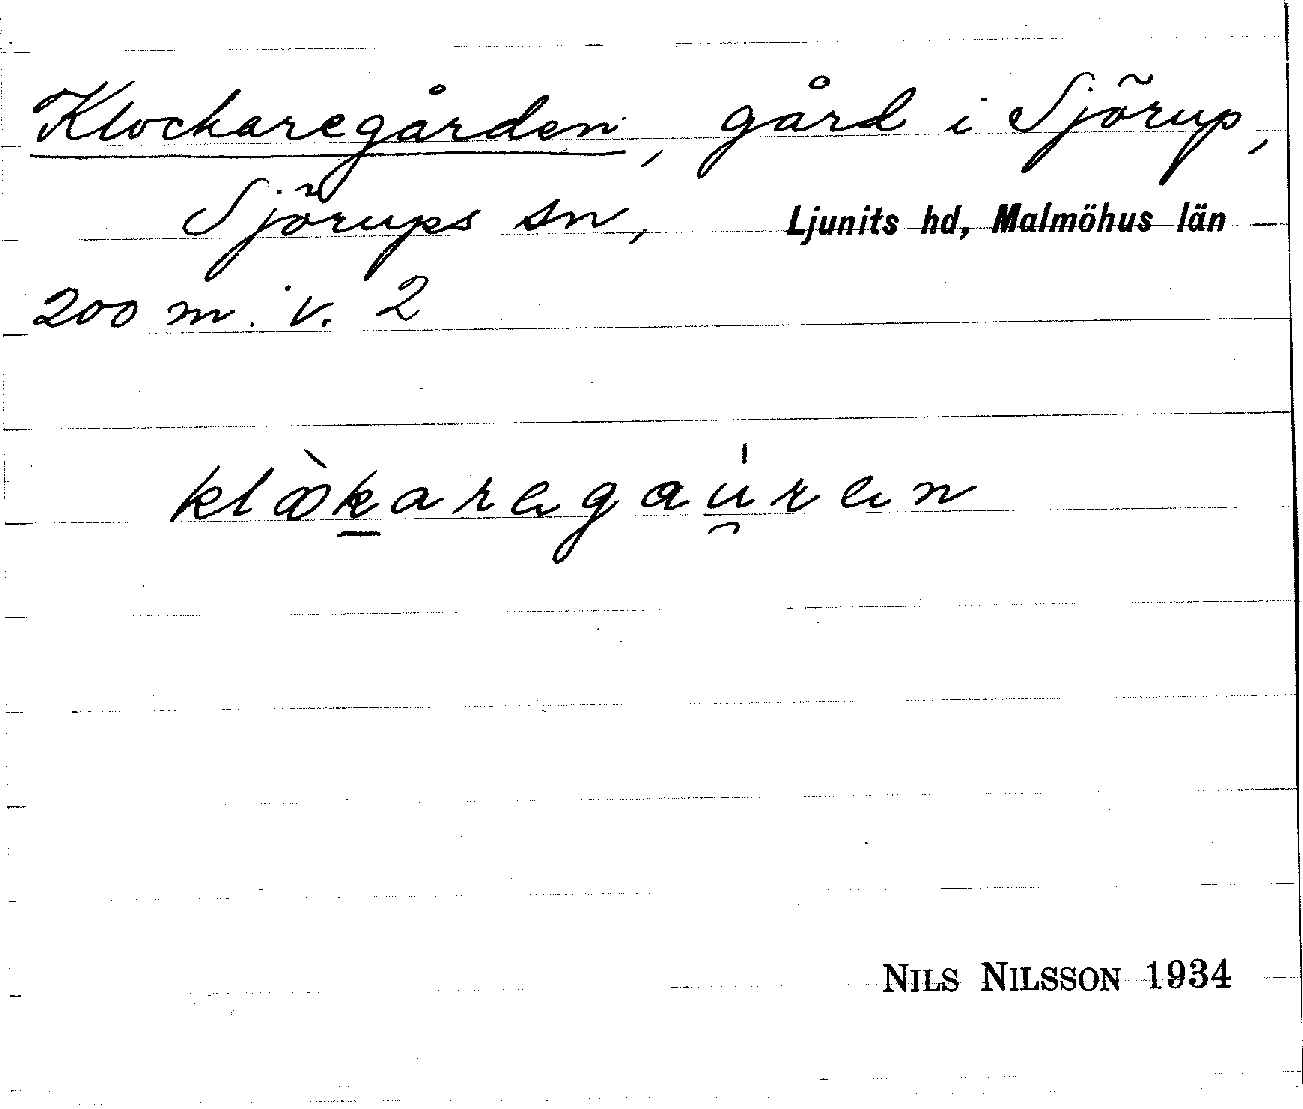 Klockaregården, gård i Sjörup,
Sjörups sn, Ljunits hd, Malmöhus län
200 m. v. 2
klꝏ̀k̲aregaú̯ren
NILS NILSSON 1934